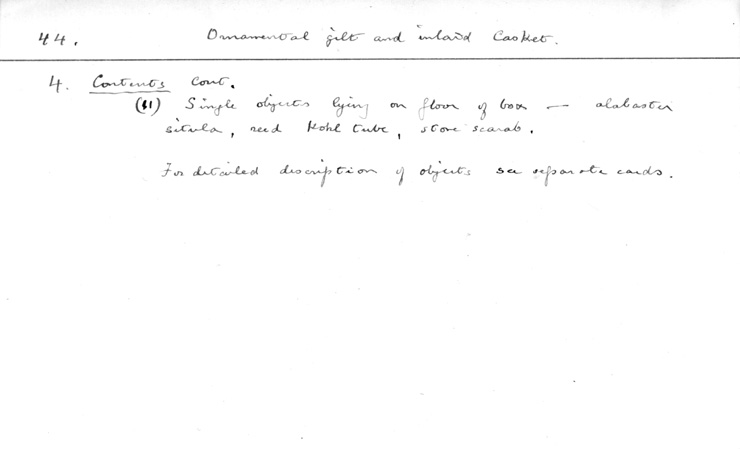 44. Ornamental gilt and inlaid Casket.
4. Contents cont.
(11) Single objects lying on floor of box — alabaster
situla, reed Kohl tube, stone scarab.
For detailed description of objects see separate cards.